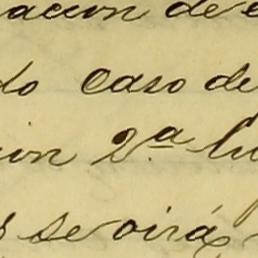 acion de
do caso de
ion 2.a
se oirá